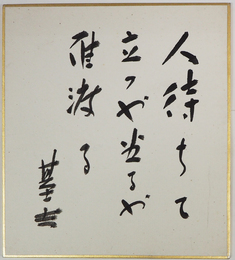 人待ちて
立つや坐るや
雁渡る